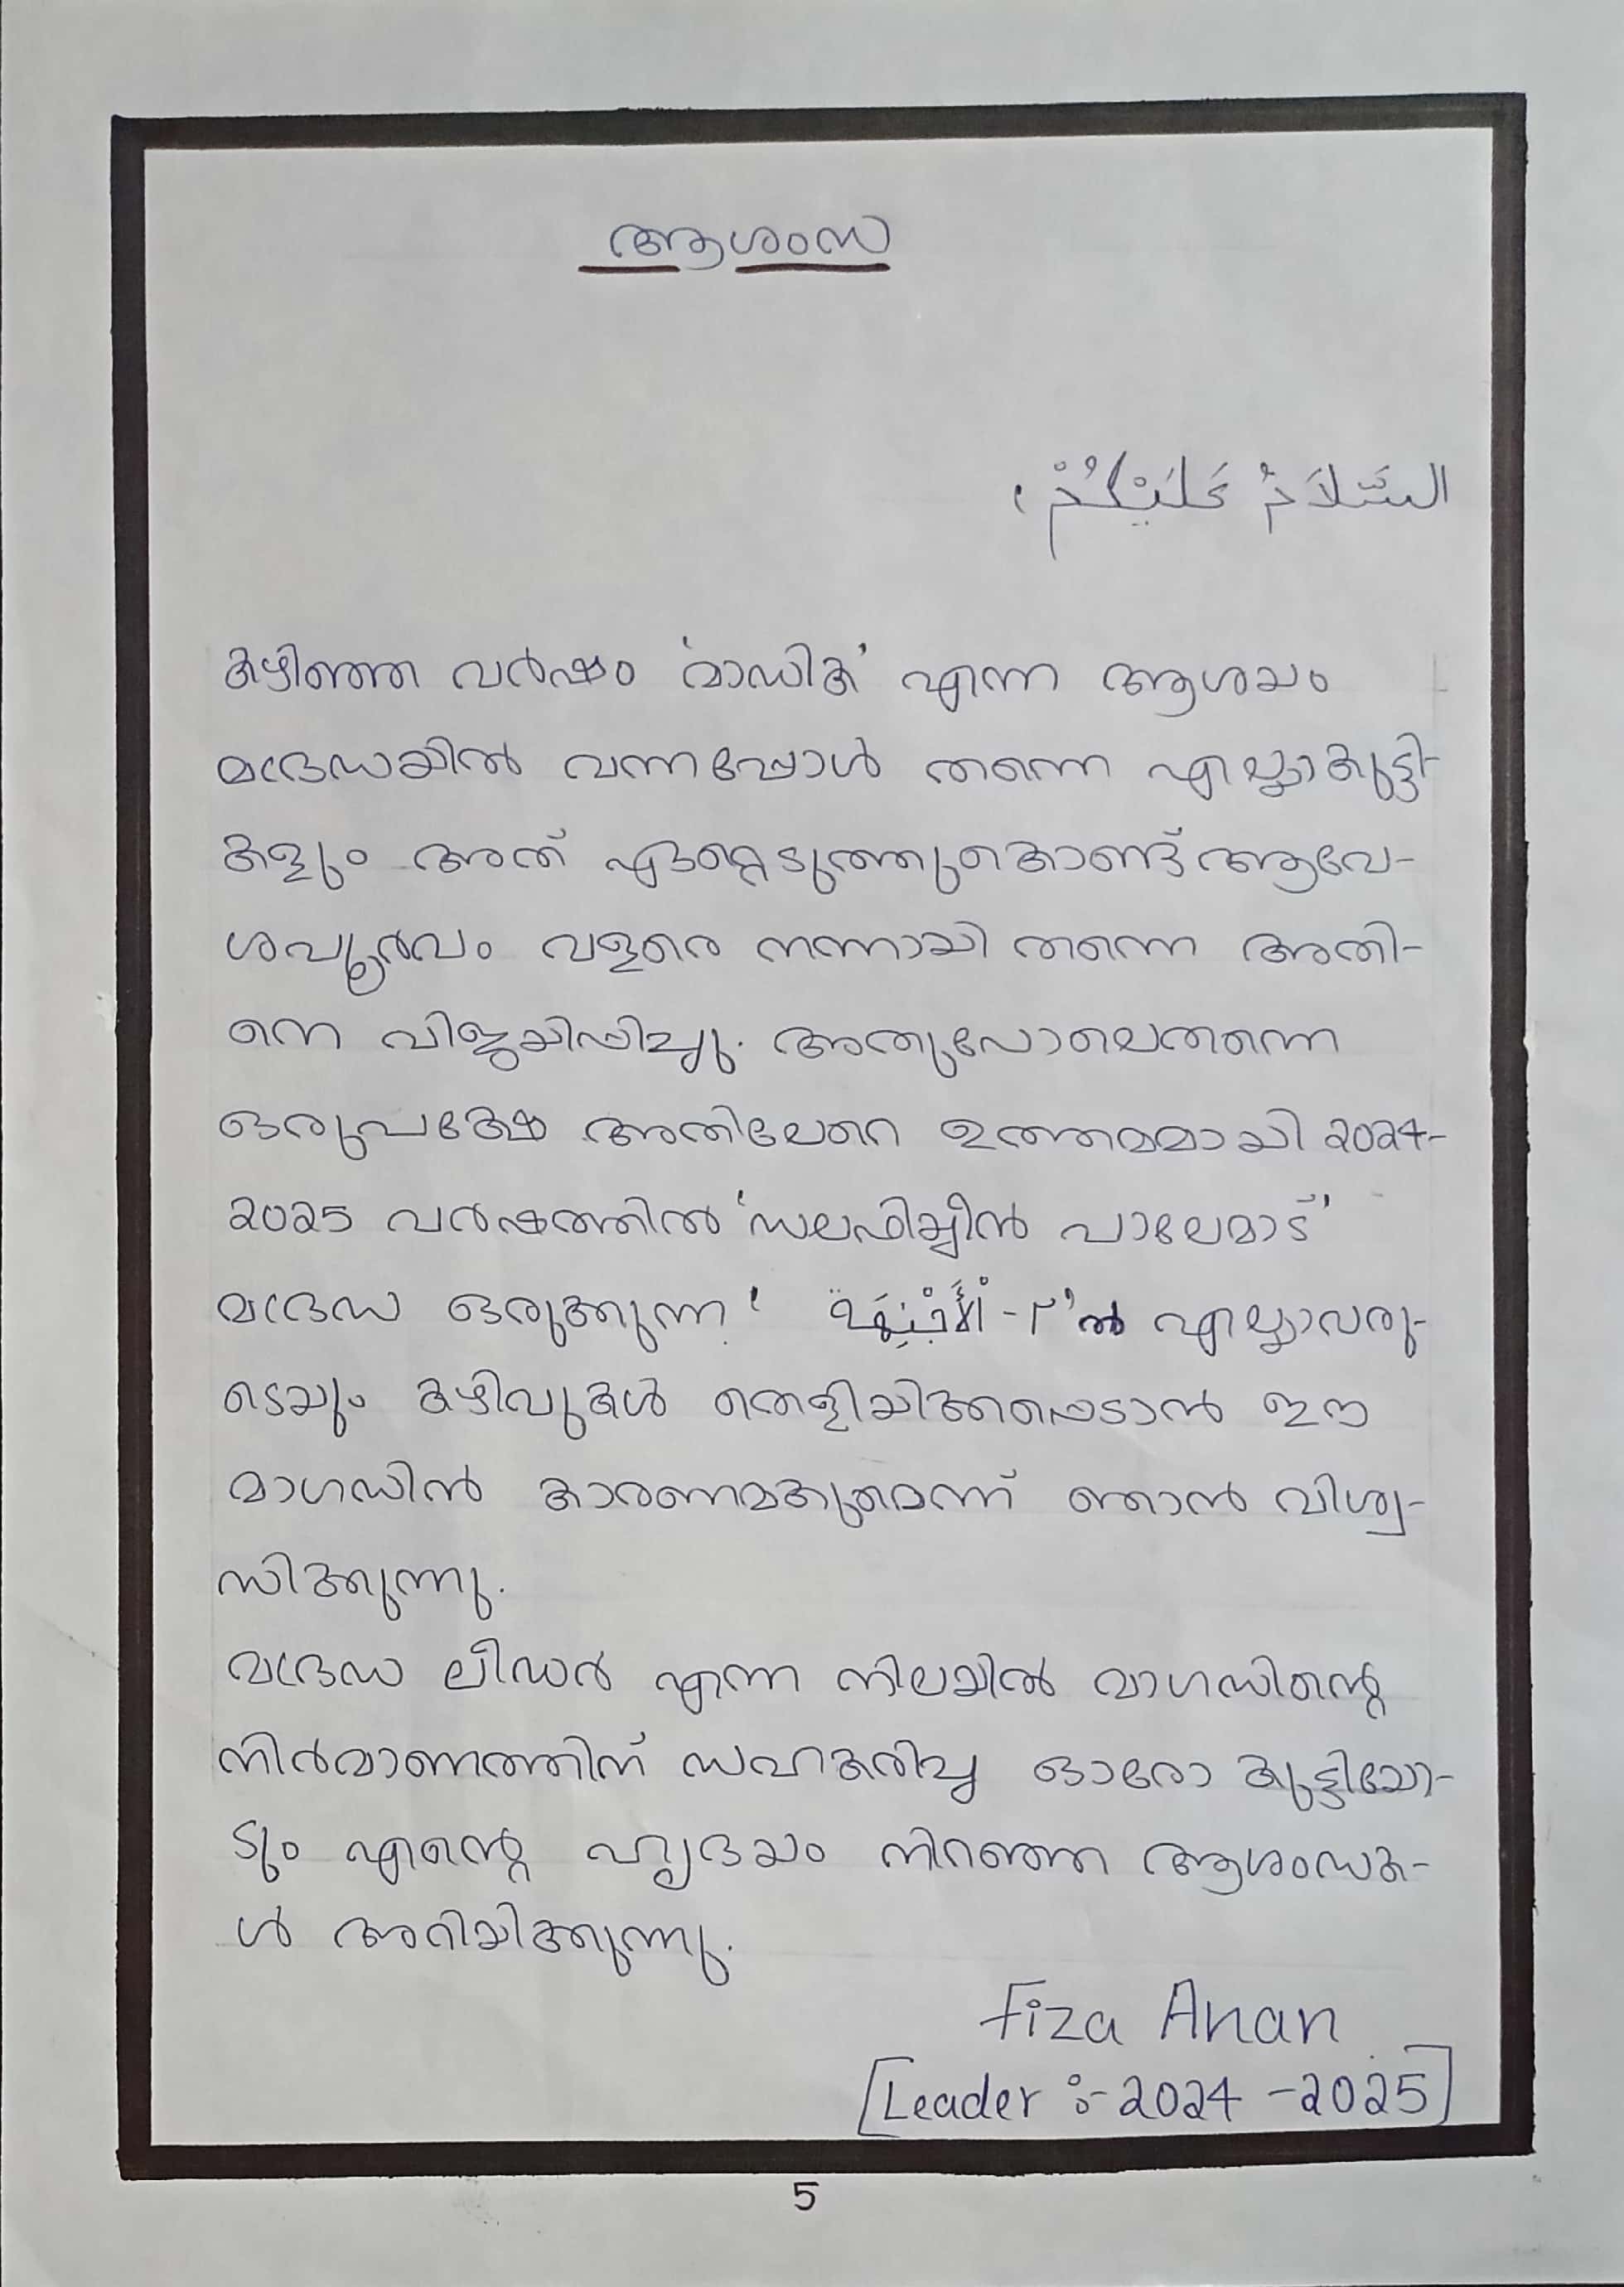 ആശംസ
السَّلَامُ عَلَيْكُمْ،
കഴിഞ്ഞ വർഷം 'മാഡിക' എന്ന ആശയം
മദ്രസയിൽ വന്നപ്പോൾ തന്നെ എല്ലാകുട്ടി-
കളും അത് ഏറ്റെടുത്തുകൊണ്ട് ആവേ-
ശപൂർവം വളരെ നന്നായി തന്നെ അതി-
നെ വിജയിപ്പിച്ചു. അതുപോലെതന്നെ
ഒരുപക്ഷേ അതിലേറെ ഉത്തമമായി 2024-
2025 വർഷത്തിൽ 'സലഫിയ്യീൻ പാലേമാട്'
മദ്രസ ഒരുക്കുന്ന ' - ٢'ൽ എല്ലാവരു-
ടെയും കഴിവുകൾ തെളിയിക്കപ്പെടാൻ ഈ
മാഗസിൻ കാരണമകുമെന്ന് ഞാൻ വിശ്വ-
സിക്കുന്നു.
മദ്രസ ലീഡർ എന്ന നിലയിൽ മാഗസിന്റെ
നിർമാണത്തിന് സഹകരിച്ച ഓരോ കുട്ടിയോ-
ടും എന്റെ ഹൃദയം നിറഞ്ഞ ആശംസക-
ൾ അറിയിക്കുന്നു.
Fiza Anan
[Leader :- 2024 - 2025]
5